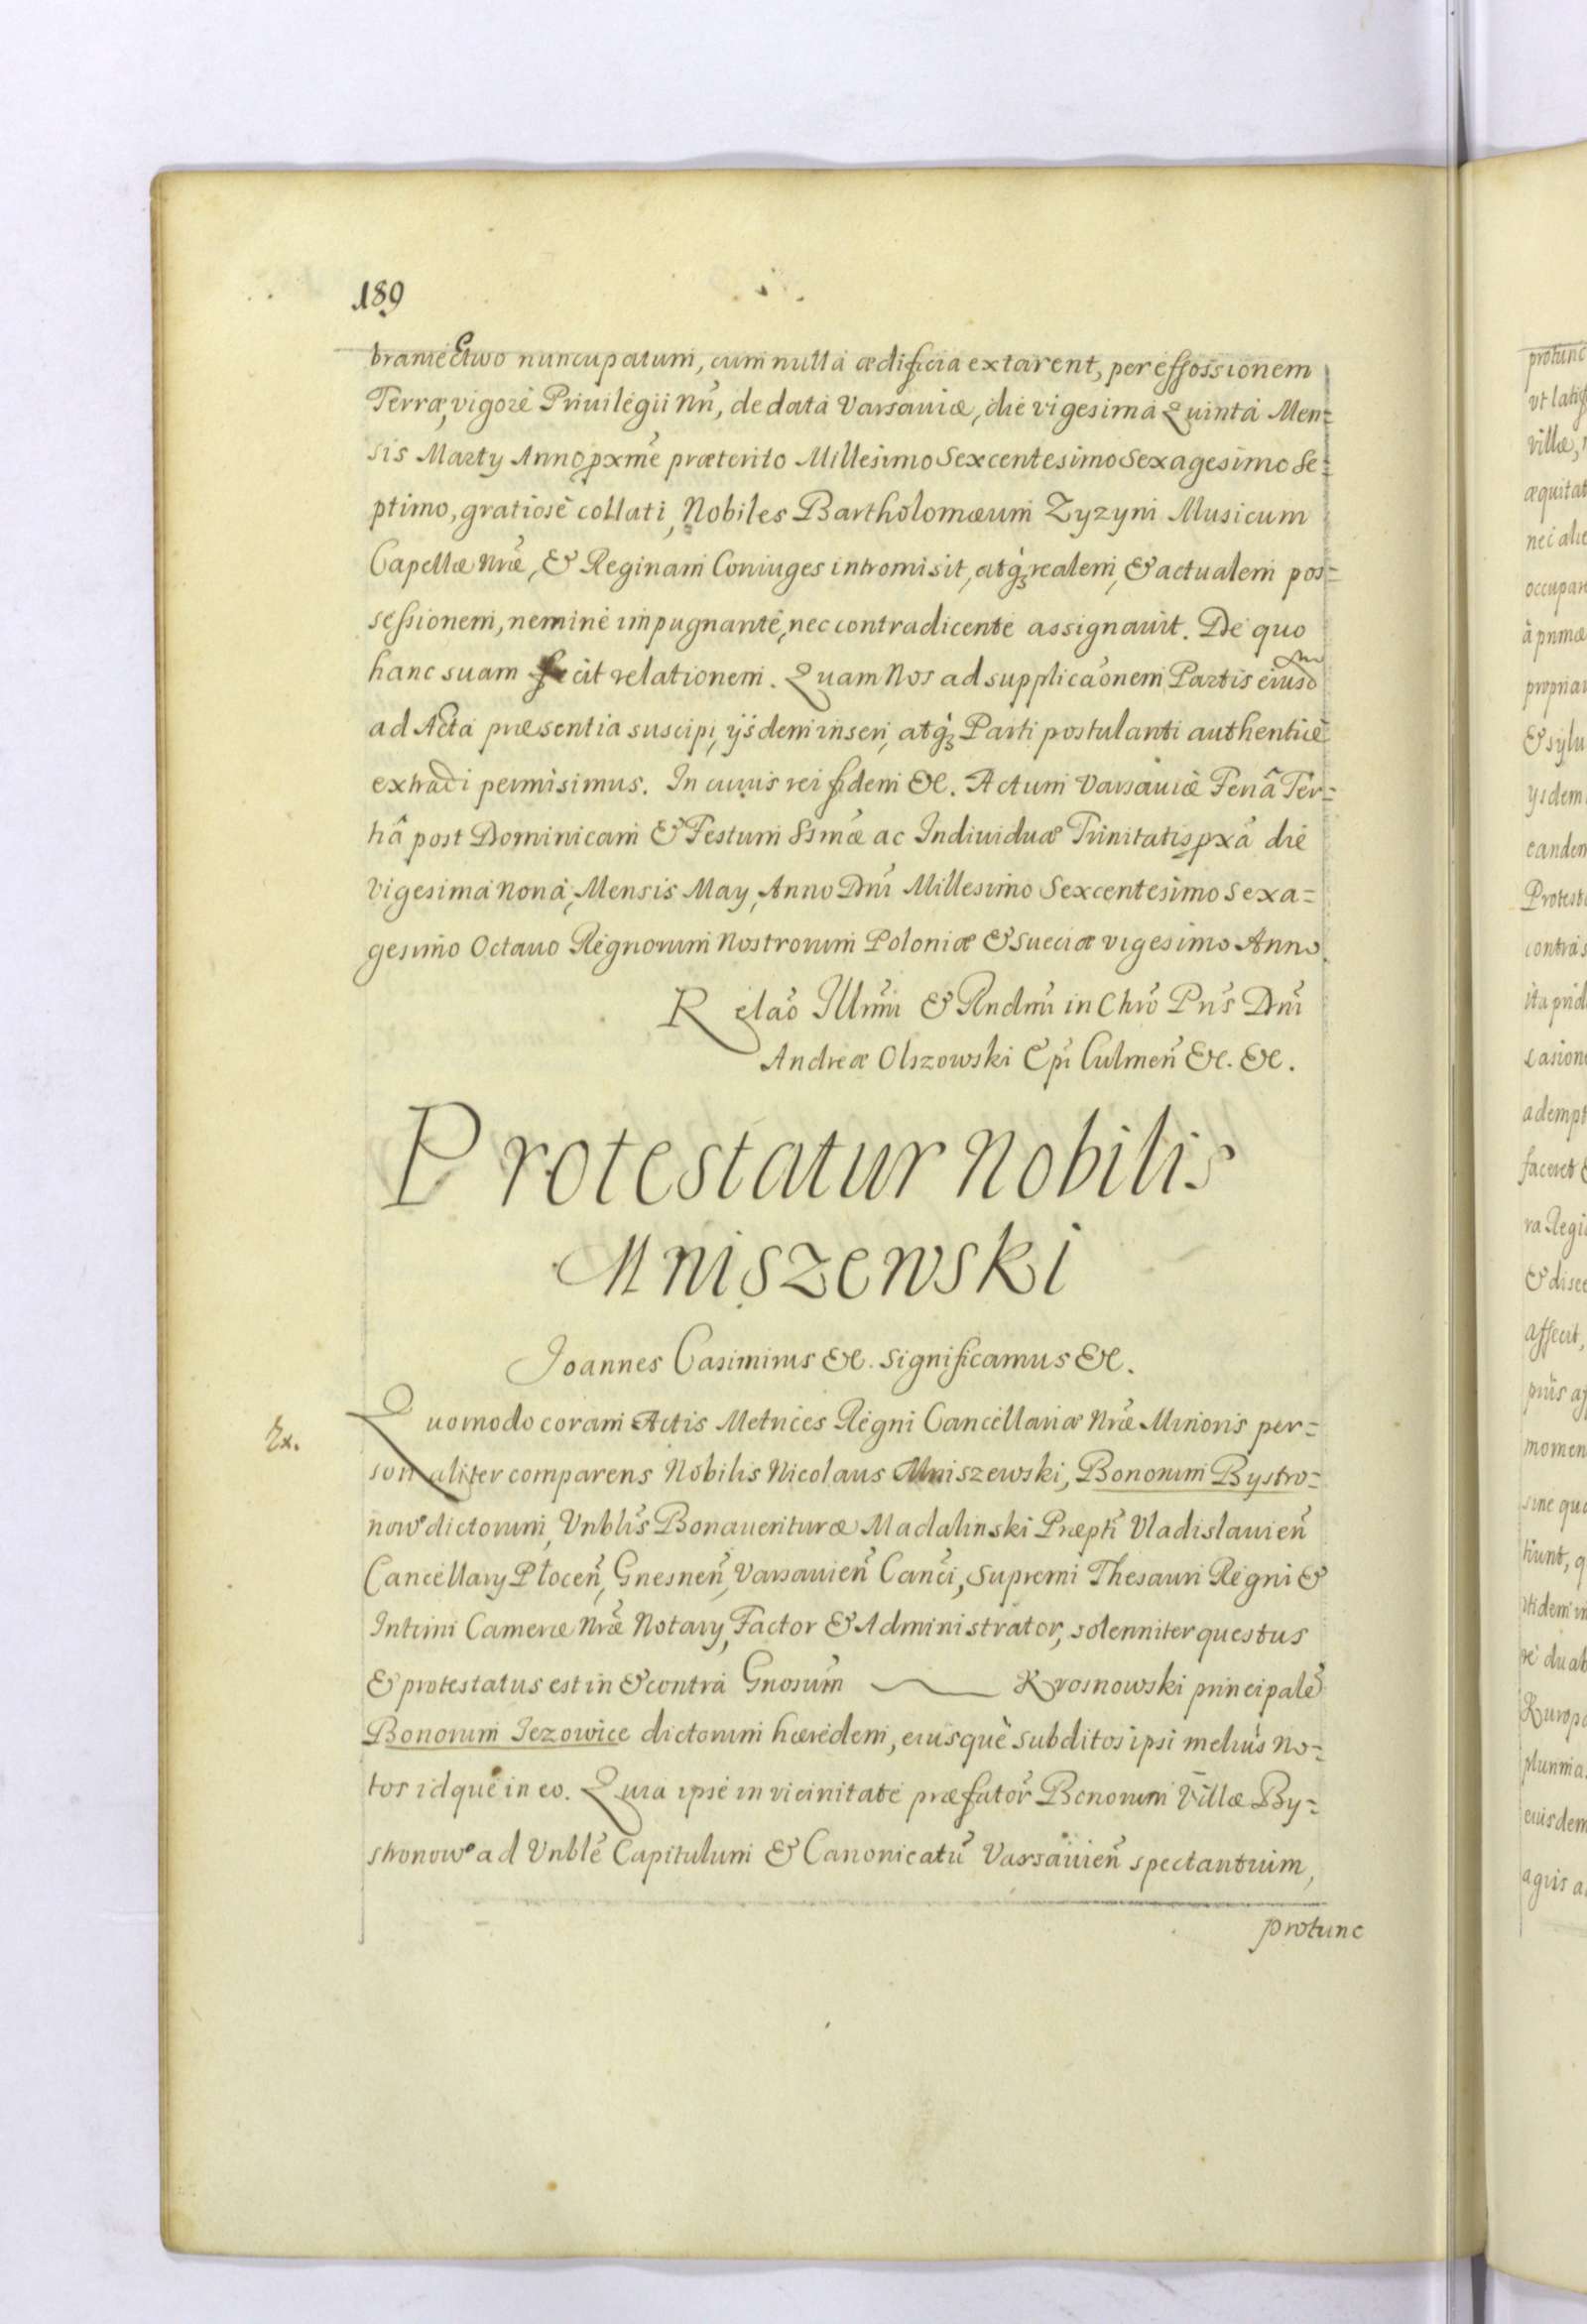 189
braniectwo nuncupatum, cum nulla ædificia extarent, per effossionem
Terræ, vigore Priuilegii Nrĩ, de data Varsauiæ, die vigesima Quinta Men=
sis Marty Anno pxme præterito Millesimo Sexcentesimo Sexagesimo Se=
ptimo, gratiosè collati, Nobiles Bartholomæum Zyzyni Musicum
Capellæ Nræ, & Reginam Coniuges intromisit, atq3 realem, & actualem pos=
sessionem, nemine impugnante, nec contradicente assignauit. De quo
hanc suam fecit relationem. Quam Nos ad supplicaõnem Partis eiusd
ad Acta præsentia suscipi, ijsdem inseri, atq3 Parti postulanti authenticè
extradi permisimus. In cuius rei fidem &c. Actum Varsauiæ Feriâ Ter=
tiâ post Dominicam & Festum Ssmæ ac Indiuiduæ Trinitatis pxa die
vigesima nona, Mensis May, Anno Dni Millesimo Sexcentesimo Sexa=
gesimo Octauo Regnorum Nostrorum Poloniæ & Sueciæ vigesimo Anno.
Relaõ Illmi & Rndmi in Chro Pris Dni
Andreæ Olszowski Epi Culmeñ &c. &c.
Protestatur Nobilis
Mniszewski
Joannes Casimirus &c. significamus &c.
Ex.
Quomodo coram Actis Metrices Regni Cancellariæ Nræ Minoris per=
sonaliter comparens Nobilis Nicolaus Mniszewski, Bonorum Bystro=
nowo dictorum, Vnblis Bonauenturæ Madalinski Præpti Vladislauieñ
Cancellary Płoceñ, Gnesneñ, Varsauieñ Canci, Supremi Thesauri Regni &
Intimi Cameræ Nræ Notary, Factor & Administrator, solenniter questus
& protestatus est in & contra Gnosum Krosnowski principale
Bonorum Jezowice dictorum hæredem, eiusque subditos ipsi melius no=
tos idque in eo. Quia ipse in vicinitate præfator Bonorum Villæ By=
stronowo ad Vnble Capitulum & Canonicatu Varsauieñ spectantium,
protunc
protunc